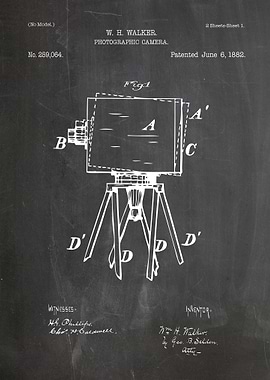 (No Model.)
2 Sheets-Sheet 1.
W. H. WALKER.
PHOTOGRAPHIC CAMERA.
No. 259,064.
Patented June 6, 1882.
Fig. 1
A'
A
B
C
D' D D D'
WITNESSES-
INVENTOR-
H. G. Phillips.
Wm H. Walker.
by Geo. B. Selden,
Atty-